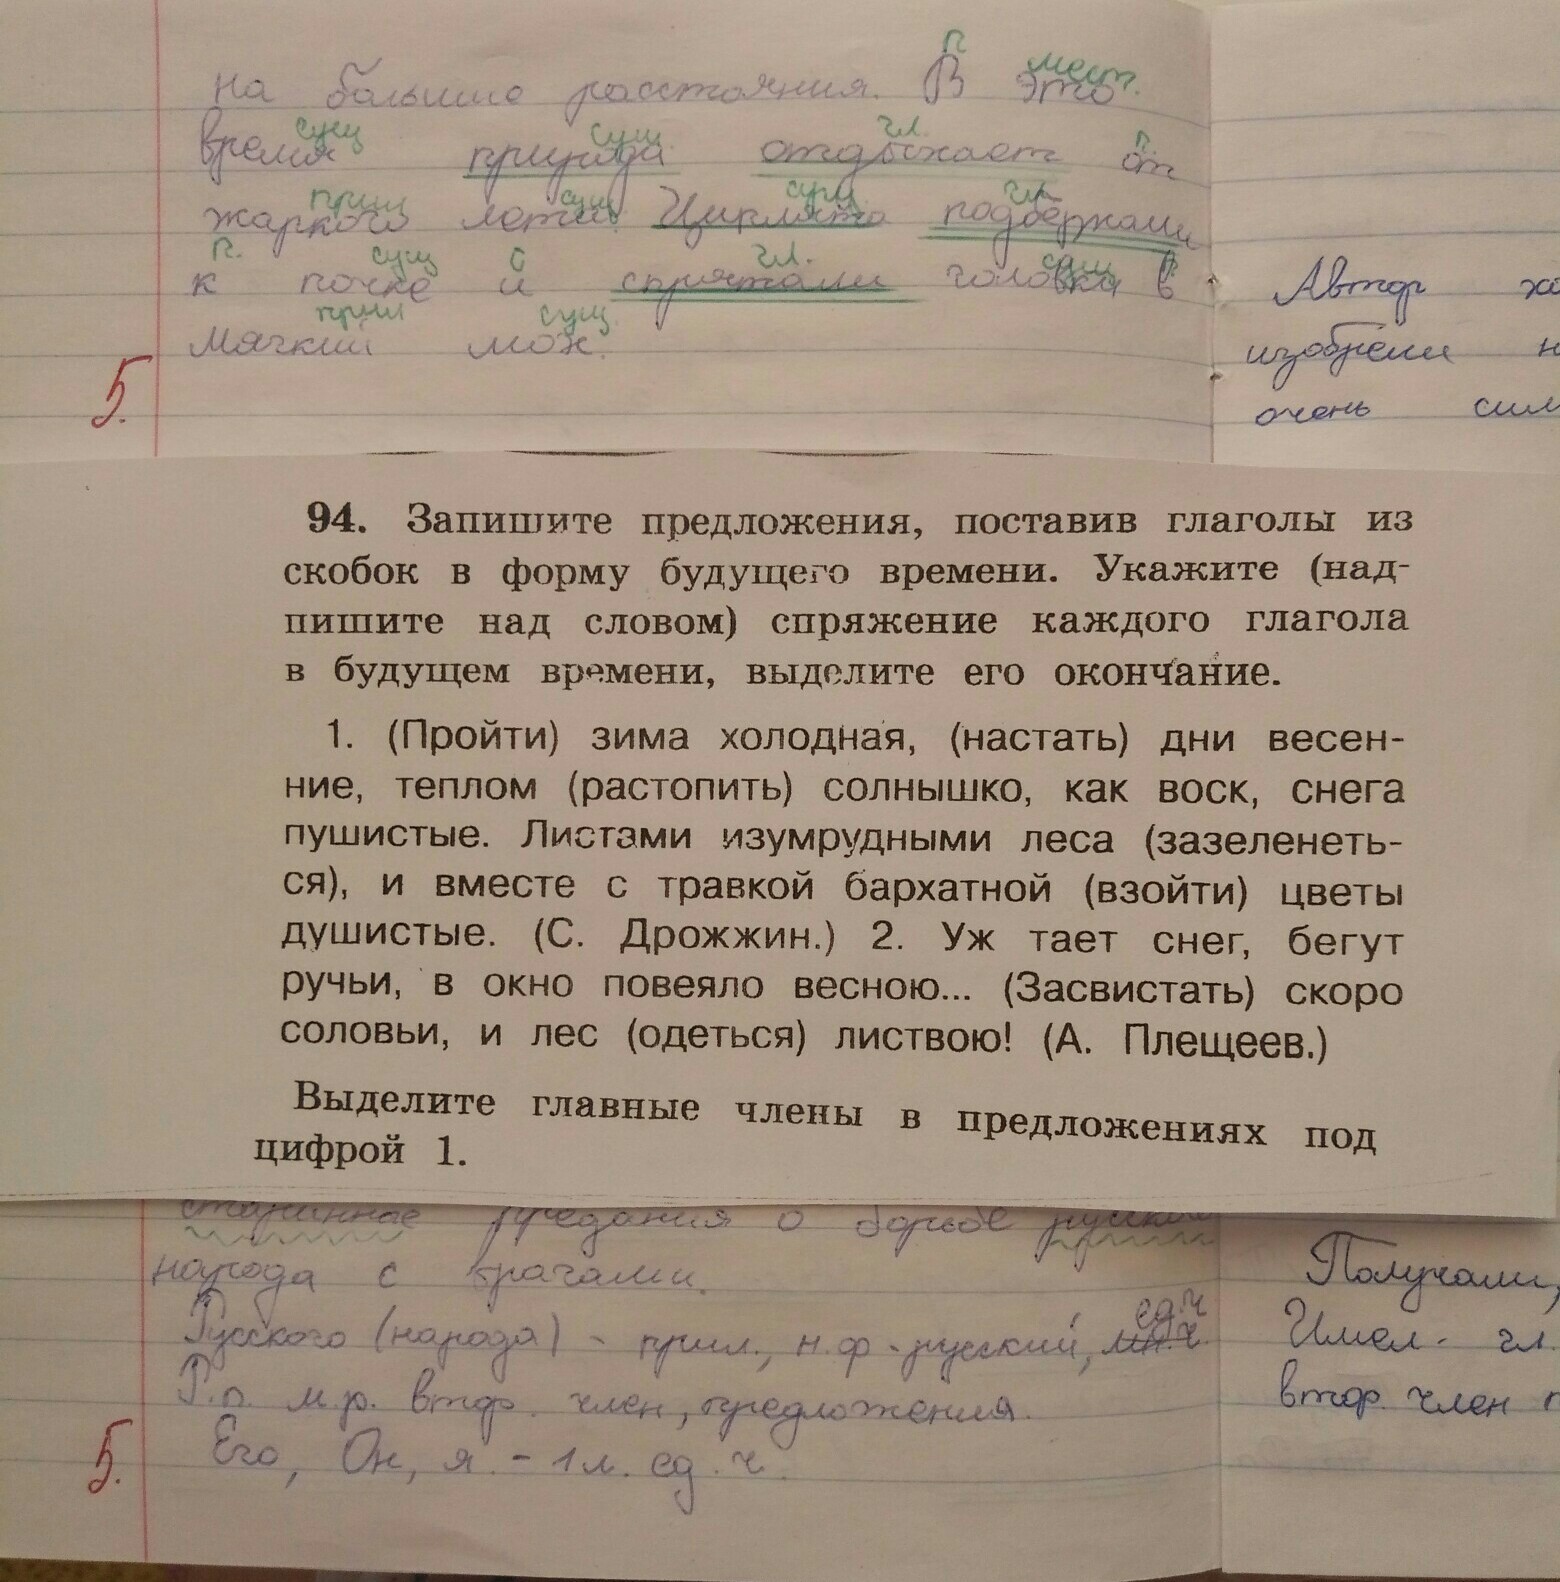 на большие расстояния. В это
п мест.
время природа отдыхает от
сущ сущ. гл. п.
жаркого лета. Циплята подбержали
прил сущ. сущ. гл.
к почке и спрятали головки в
п. сущ с гл. сущ п
мягкий мох.
прил сущ.
5.
Автор
изобрёл н
очень сил
94. Запишите предложения, поставив глаголы из
скобок в форму будущего времени. Укажите (над-
пишите над словом) спряжение каждого глагола
в будущем времени, выделите его окончание.
1. (Пройти) зима холодная, (настать) дни весен-
ние, теплом (растопить) солнышко, как воск, снега
пушистые. Листами изумрудными леса (зазеленеть-
ся), и вместе с травкой бархатной (взойти) цветы
душистые. (С. Дрожжин.) 2. Уж тает снег, бегут
ручьи, в окно повеяло весною... (Засвистать) скоро
соловьи, и лес (одеться) листвою! (А. Плещеев.)
Выделите главные члены в предложениях под
цифрой 1.
старинные предания о борьбе русского
народа с врагами.
Русского (народа) - прил., н. ф - русский, ед.ч
Р.п. м.р. втор. член, предложения.
Его, Он, я. - 1 л. ед. ч.
5.
Получали,
Имел - гл.
втор. член п